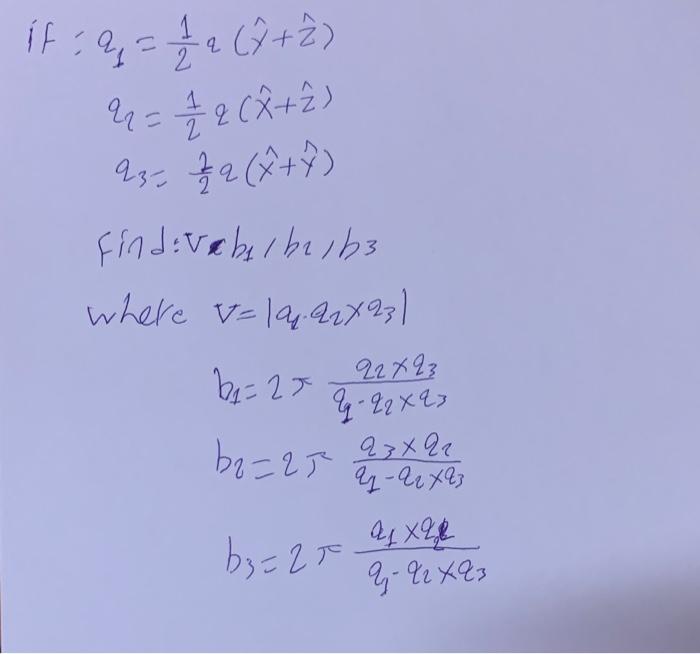 if : a₁ = 1/2 a (ŷ+ẑ)
a₂ = 1/2 a (x̂+ẑ)
a₃ = 1/2 a (x̂+ŷ)
find: V b₁ / b₂ / b₃
where V = |a₁·a₂×a₃|
b₁ = 2π a₂×a₃ / a₁·a₂×a₃
b₂ = 2π a₃×a₂ / a₁-a₂×a₃
b₃ = 2π a₁×a₂ / a₁-a₂×a₃